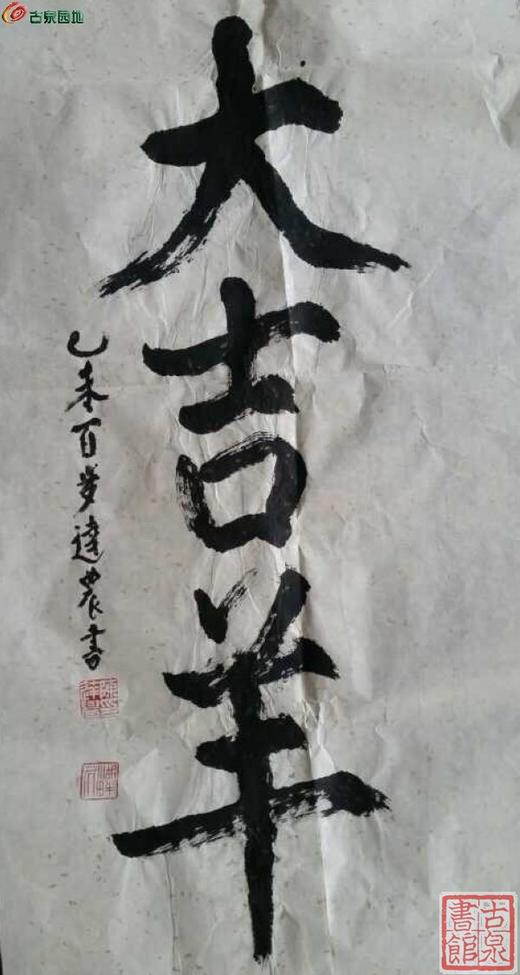 古泉园地
大吉羊
乙未百岁達農書
古泉
書館